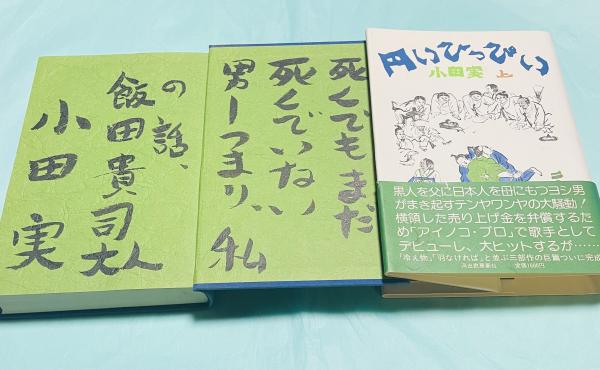 円いひっぴい
小田実 上
黒人を父に日本人を母にもつヨシ男
がまき起すテンヤワンヤの大騒動！
横領した売り上げ金を弁償するた
め「アイノコ・プロ」で歌手として
デビューし、大ヒットするが……
「冷え物」「羽なければ」と並ぶ三部作の巨篇ついに完成
河出書房新社 定価1600円
死んでもまだ
死んでいない
男ーつまり、私
の話、
飯田貴司大人
小田実